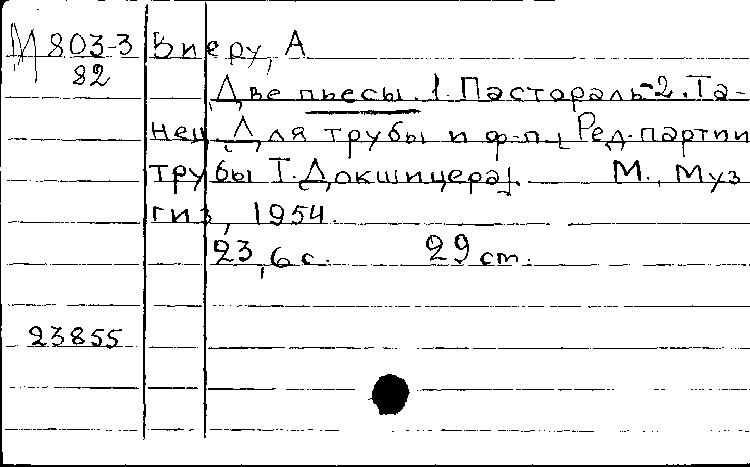 М 803-3 Виеру, А
82
Две пьесы. 1. Пастораль-2. Та-
нец. Для трубы и ф-п., Ред. партии
трубы Т. Докшицера]. М., Муз
гиз, 1954.
23, 6 с. 29 cm.
23855